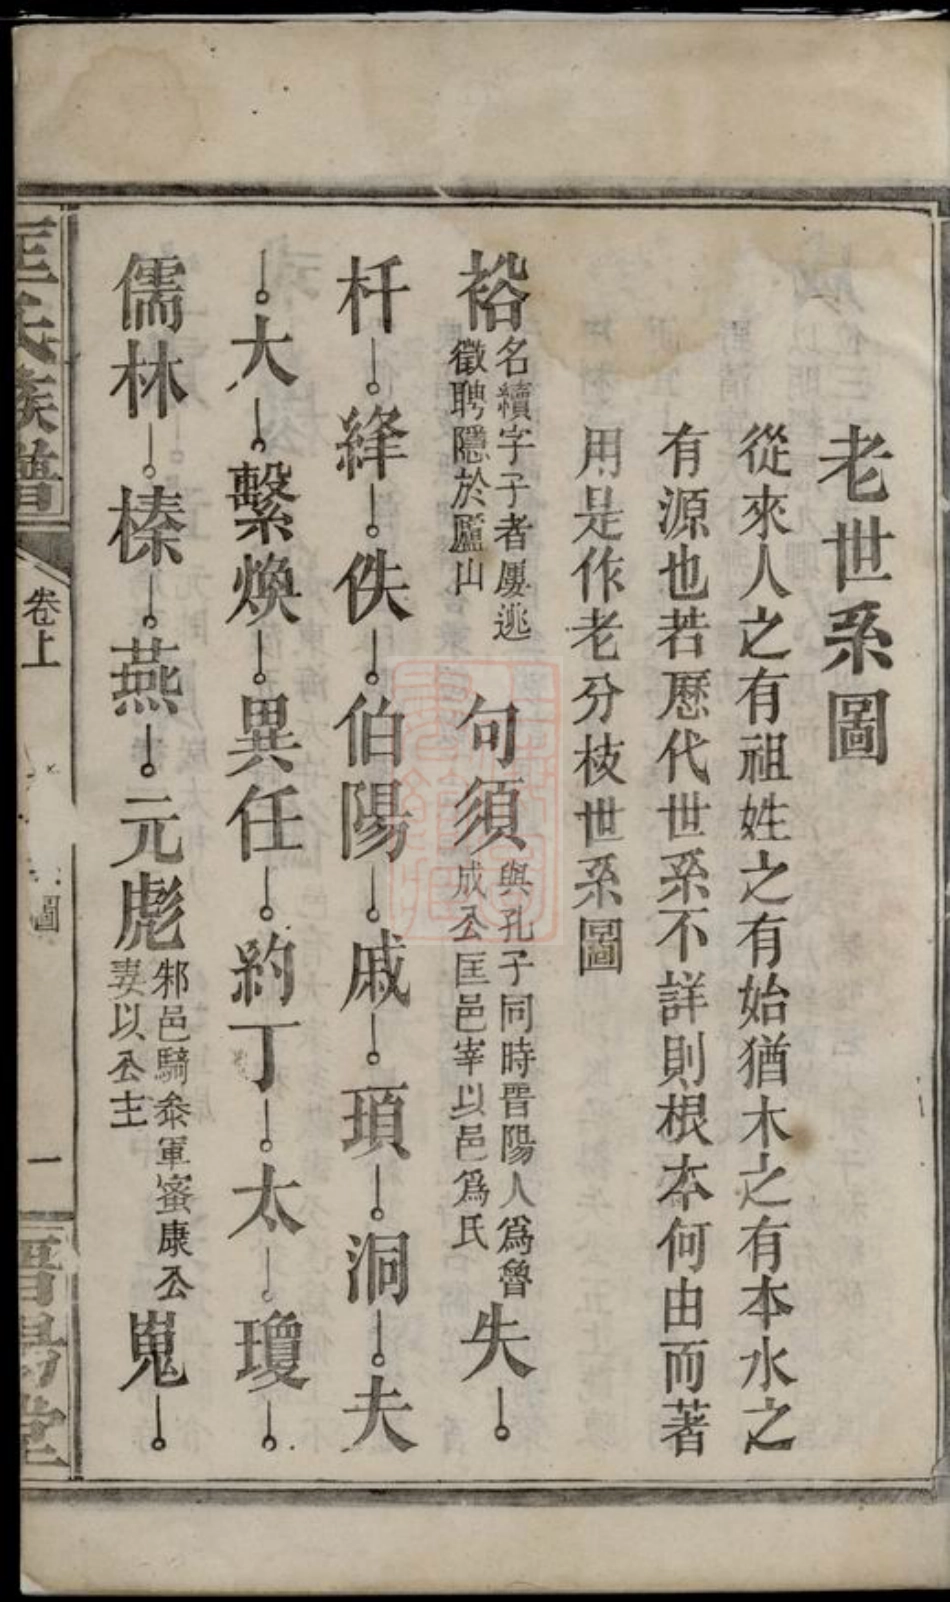 老世系圖
從來人之有祖姓之有始猶木之有本水之
有源也若厯代世系不詳則根本何由而著
用是作老分枝世系圖
裕
名續字子者屢逃
徵聘隱於廬山
句須
與孔子同時晋陽人爲魯
成公匡邑宰以邑爲氏
失
杄 絳 佚 伯陽 戚 頊 洞 夫
大 繫煥 異任 約丁 太 瓊
儒林 榛 燕 元彪
邾邑騎叅軍蜜康公
妻以公主
嵬
匡氏族譜
卷上
圖
一
晋昜堂